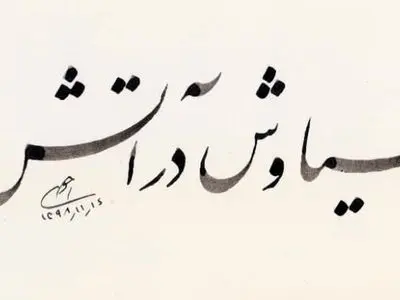 سیاوش در آتش
۱۳۹۸,۱۱,۱۶